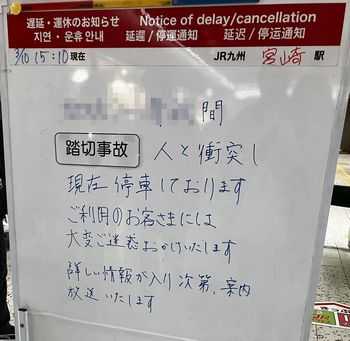 遅延・運休のお知らせ Notice of delay/cancellation
지연・운휴 안내 延遲/停運通知 延迟/停运通知
3/10 15:10 現在 JR九州 宮崎 駅
間
踏切事故 人と衝突し
現在 停車しております
ご利用のお客さまには
大変ご迷惑おかけいたします
詳しい情報が入り次第、案内
放送いたします